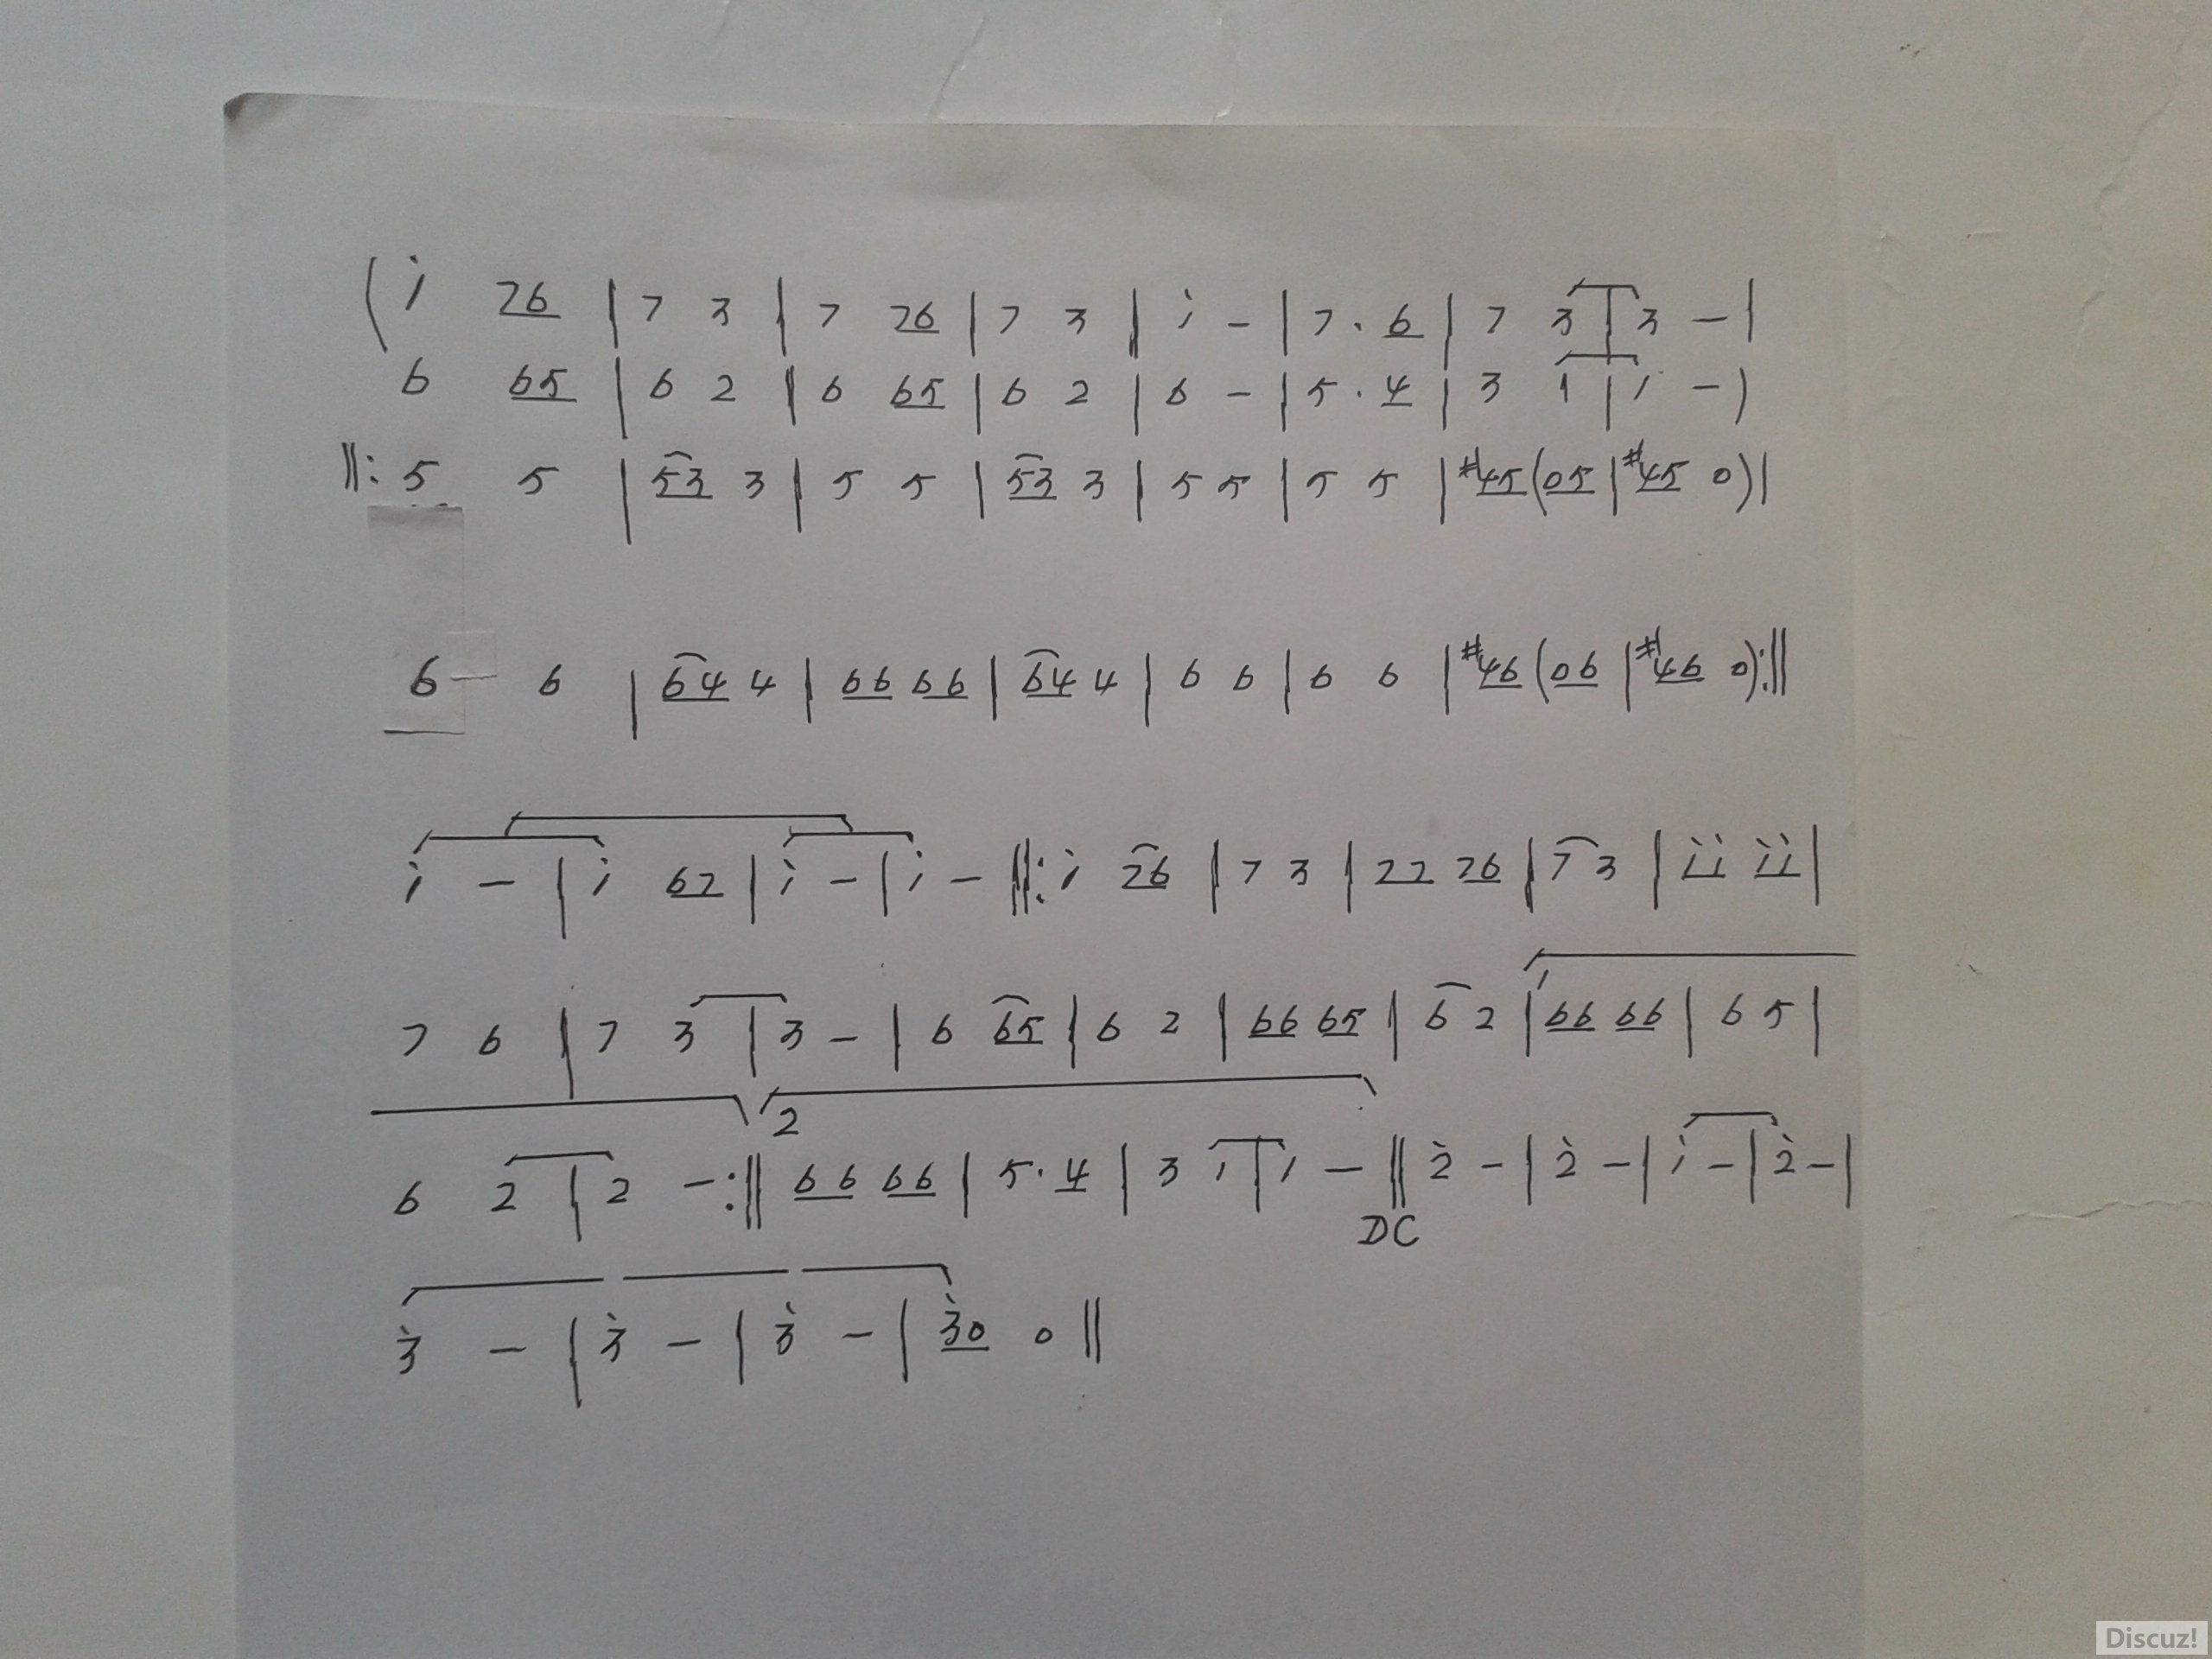 ( i̇ 76 | 7 3 | 7 76 | 7 3 | i̇ - | 7 · 6 | 7 3 | 3 - |
6 65 | 6 2 | 6 65 | 6 2 | 6 - | 5 · 4 | 3 1 | 1 - )
‖: 5 5 | 53 3 | 5 5 | 53 3 | 5 5 | 5 5 | #45 ( 05 | #45 0 ) |
6 6 | 64 4 | 66 66 | 64 4 | 6 6 | 6 6 | #46 ( 06 | #46 0 ) :‖
i̇ - | i̇ 67 | i̇ - | i̇ - ‖: i̇ 76 | 7 3 | 77 76 | 7 3 | i̇i̇ i̇i̇ |
7 6 | 7 3 | 3 - | 6 65 | 6 2 | 66 65 | 6 2 | 66 66 | 6 5 |
2
6 2 | 2 - :‖ 66 66 | 5 · 4 | 3 1 | 1 - ‖ 2̇ - | 2̇ - | i̇ - | 2̇ - |
DC
3̇ - | 3̇ - | 3̇ - | 3̇0 0 ‖
Discuz!